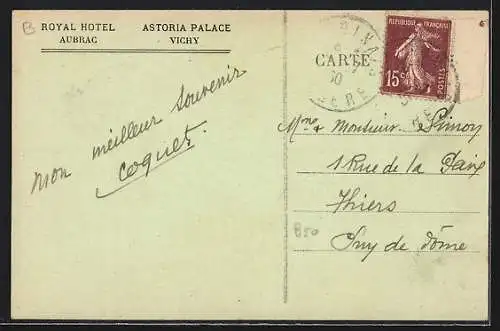 B
ROYAL HOTEL ASTORIA PALACE
AUBRAC VICHY
CARTE
REPUBLIQUE FRANÇAISE
15 c.
POSTES
mon meilleur souvenir
Coquet
Mme & Monsieur Simon
1 Rue de la Paix
Thiers
Puy de Dôme
B50